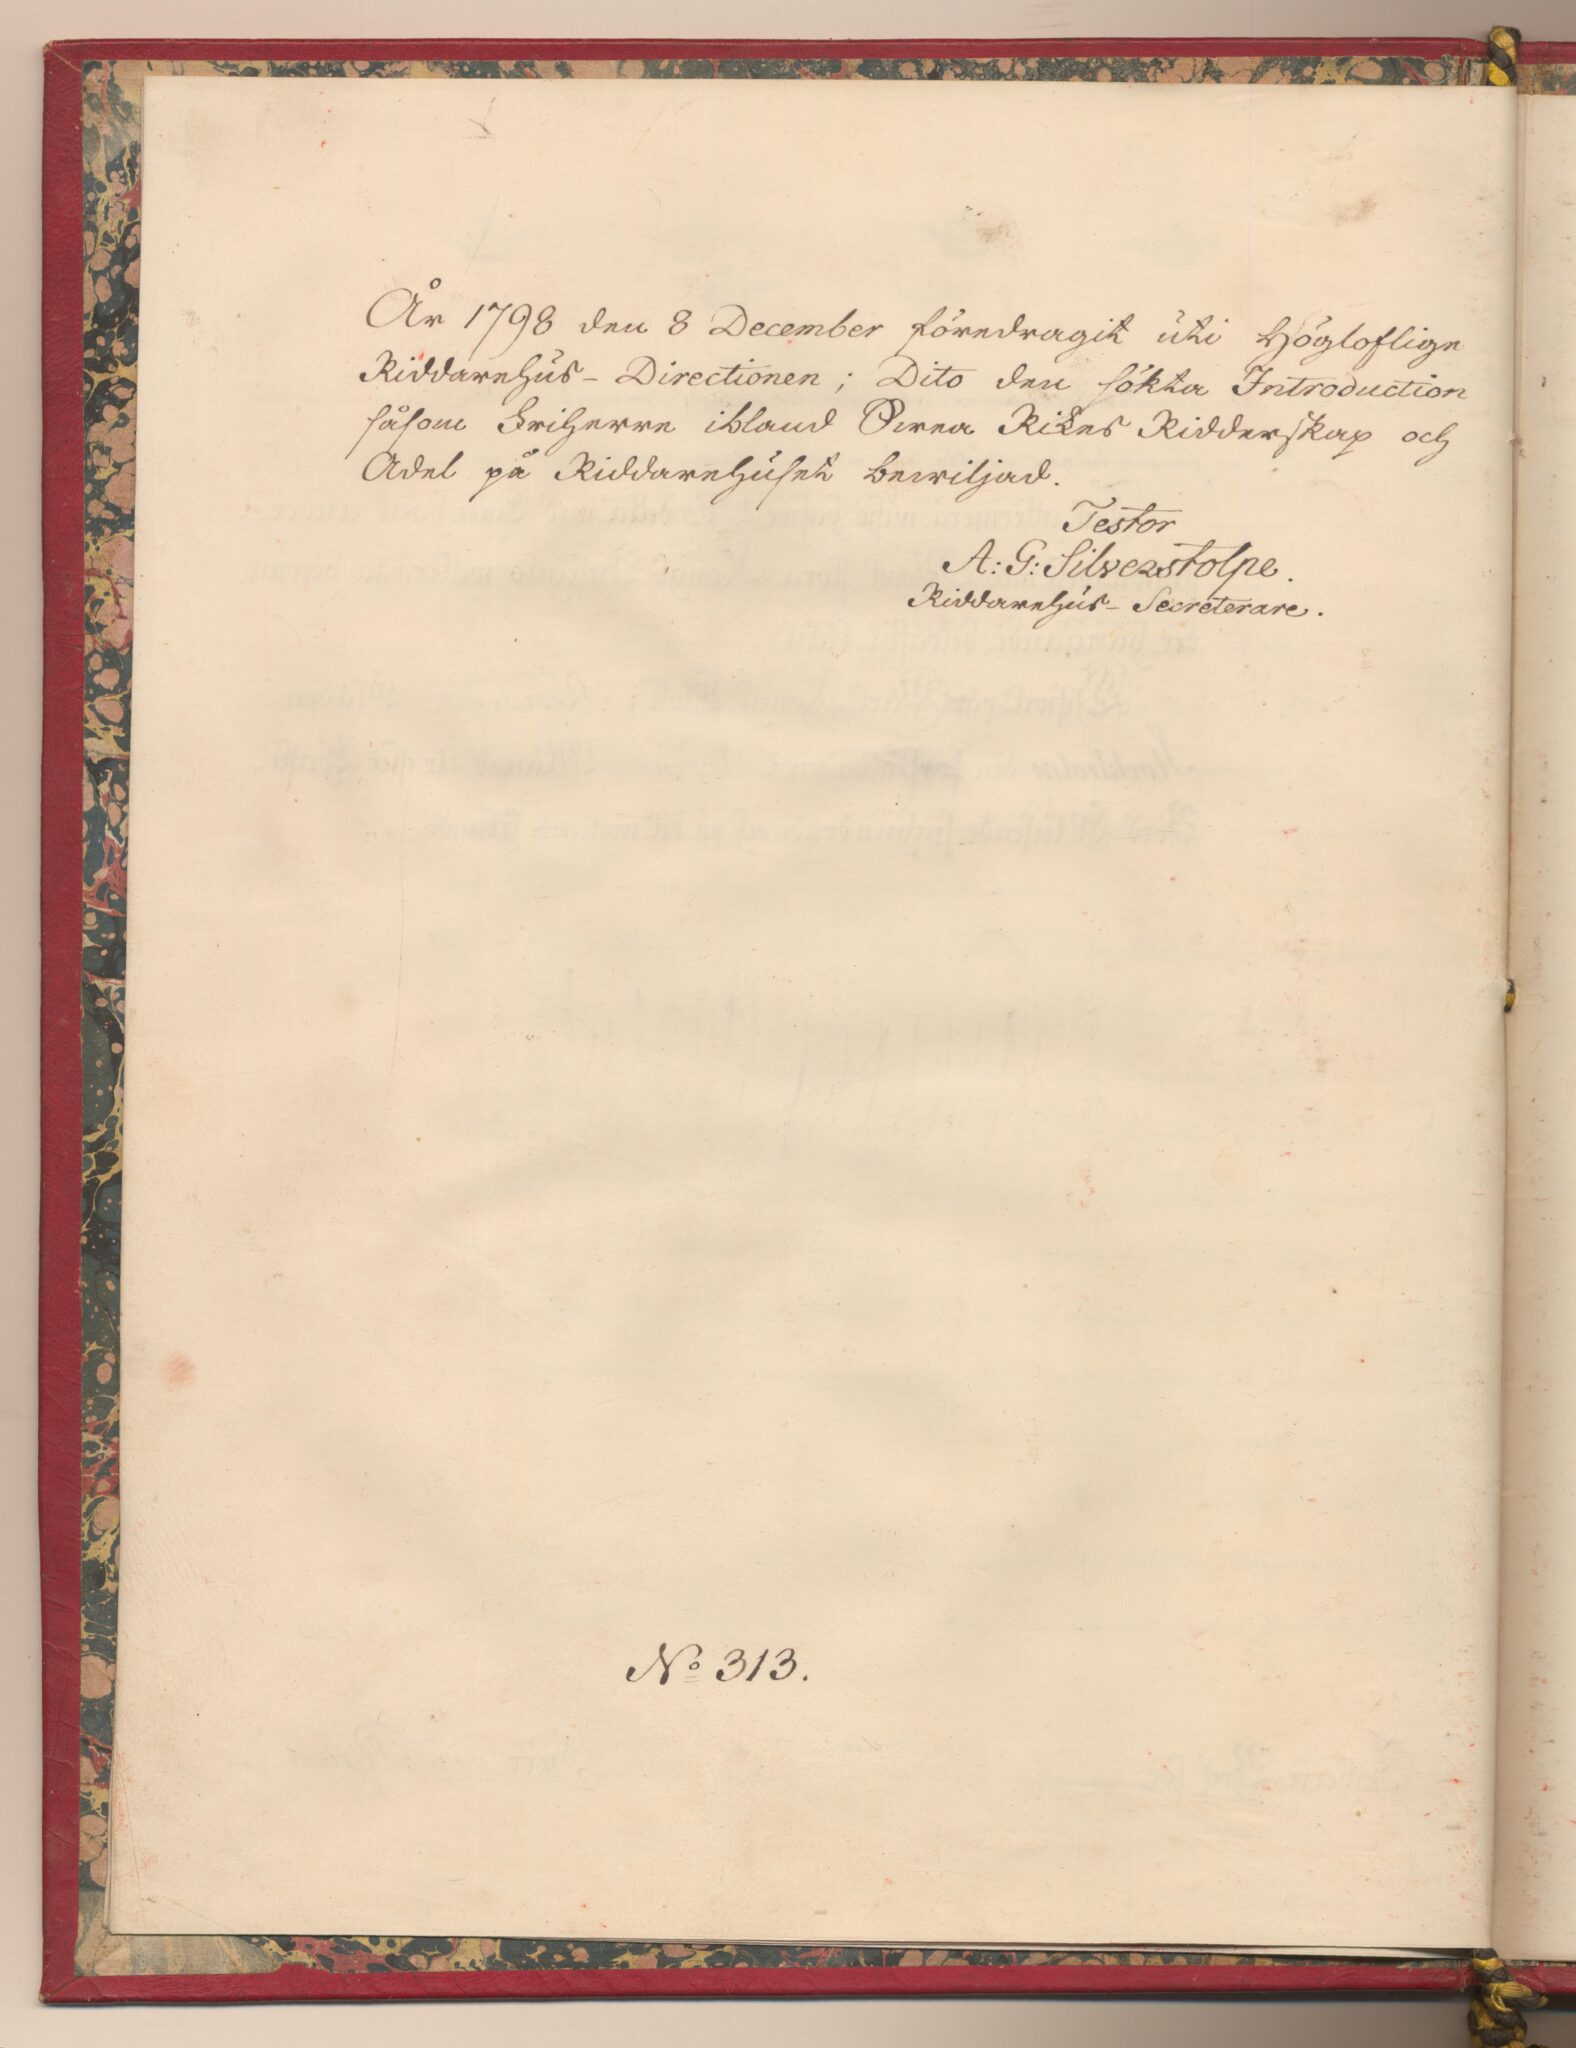 År 1798 den 8 December föredragit uti Högloflige
Riddarehus-Directionen; Dito den sökta Introduction
såsom Friherre ibland Swea Rikes Ridderskap och
Adel på Riddarehuset bewiljad.
Testor
A: G: Silverstolpe.
Riddarehus-Secreterare.
No 313.